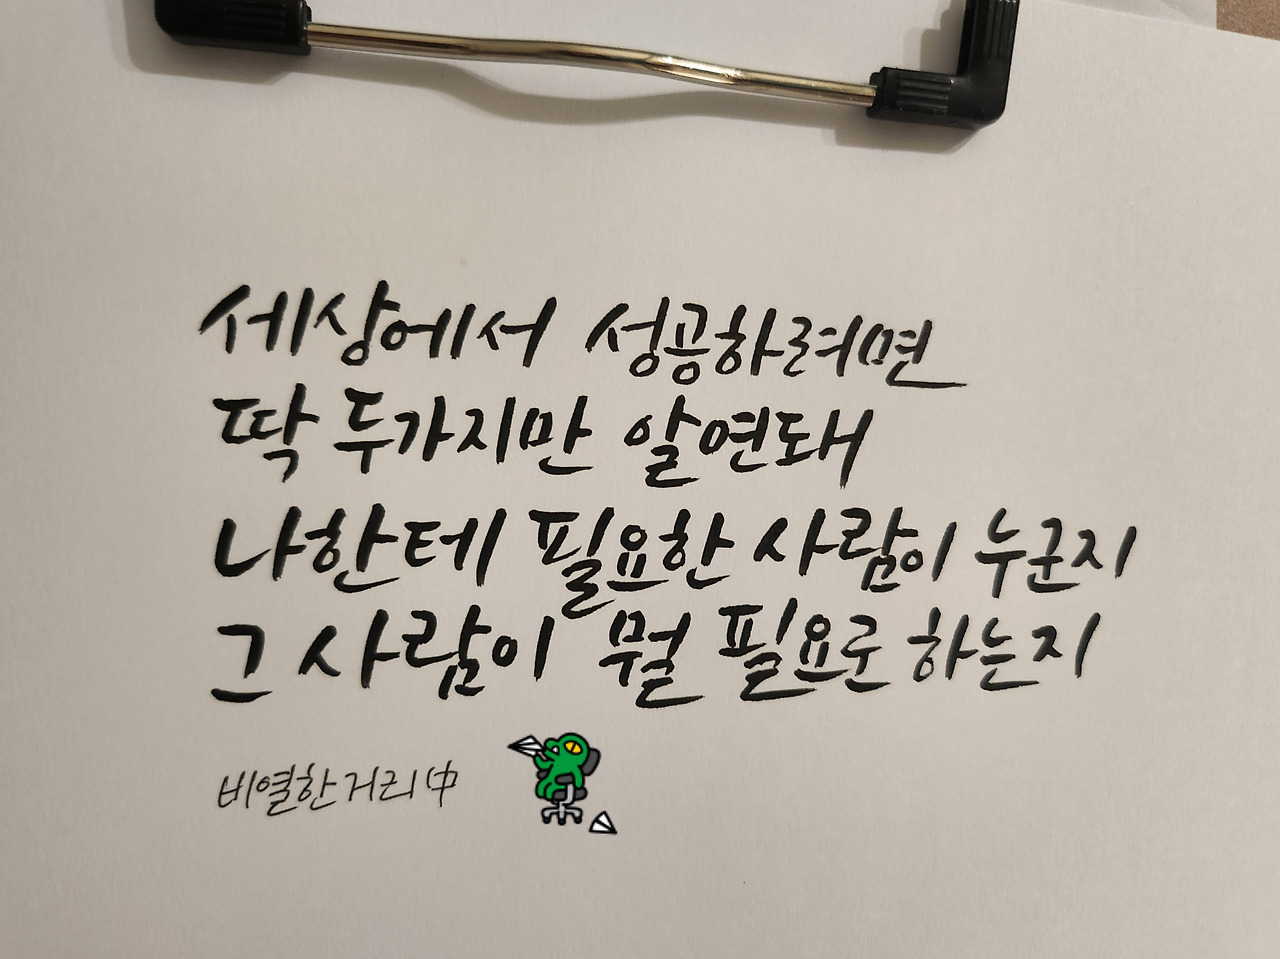 세상에서 성공하려면
딱 두가지만 알연돼
나한테 필요한 사람이 누군지
그 사람이 뭘 필요로 하는지
비열한거리 中